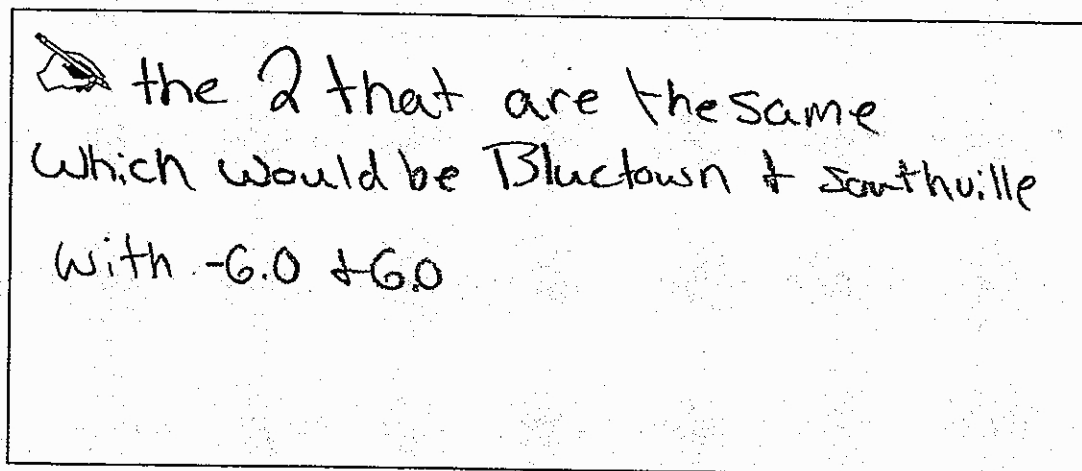 the 2 that are the same
which would be Bluetown & Southville
with -6.0 & 6.0